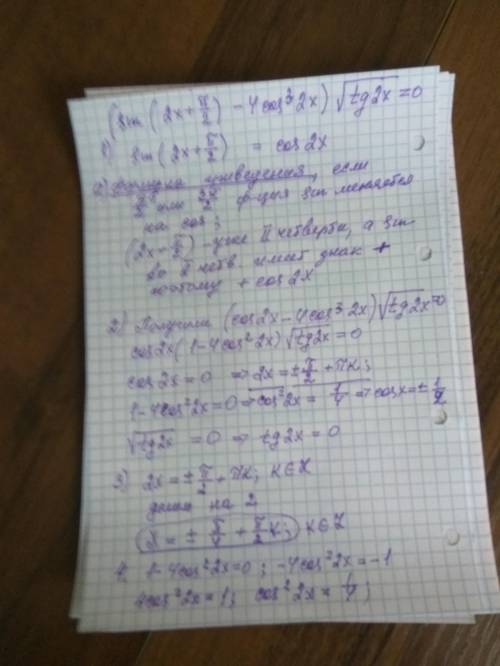 (sin(2x+π/2) - 4cos³2x)√tg2x = 0
1) sin(2x+π/2) = cos2x
а) Формула приведения, если
π/2 или 3π/2 ф-ция sin меняется
на cos;
(2x-π/2) - уже II четверть, а sin
во II четв. имеет знак +
поэтому + cos2x
2) Получим (cos2x-4cos³2x)√tg2x=0
cos2x(1-4cos²2x)√tg2x=0
cos2x=0 ⇒ 2x=±π/2+πк;
1-4cos²2x=0 ⇒ cos²2x=1/4 ⇒ cosx=±1/2
√tg2x = 0 ⇒ tg2x=0
3) 2x=±π/2+πк; к∈Z
делим на 2
x=±π/4+π/2к; к∈Z
4. 1-4cos²2x=0; -4cos²2x=-1
4cos²2x=1; cos²2x=1/4;